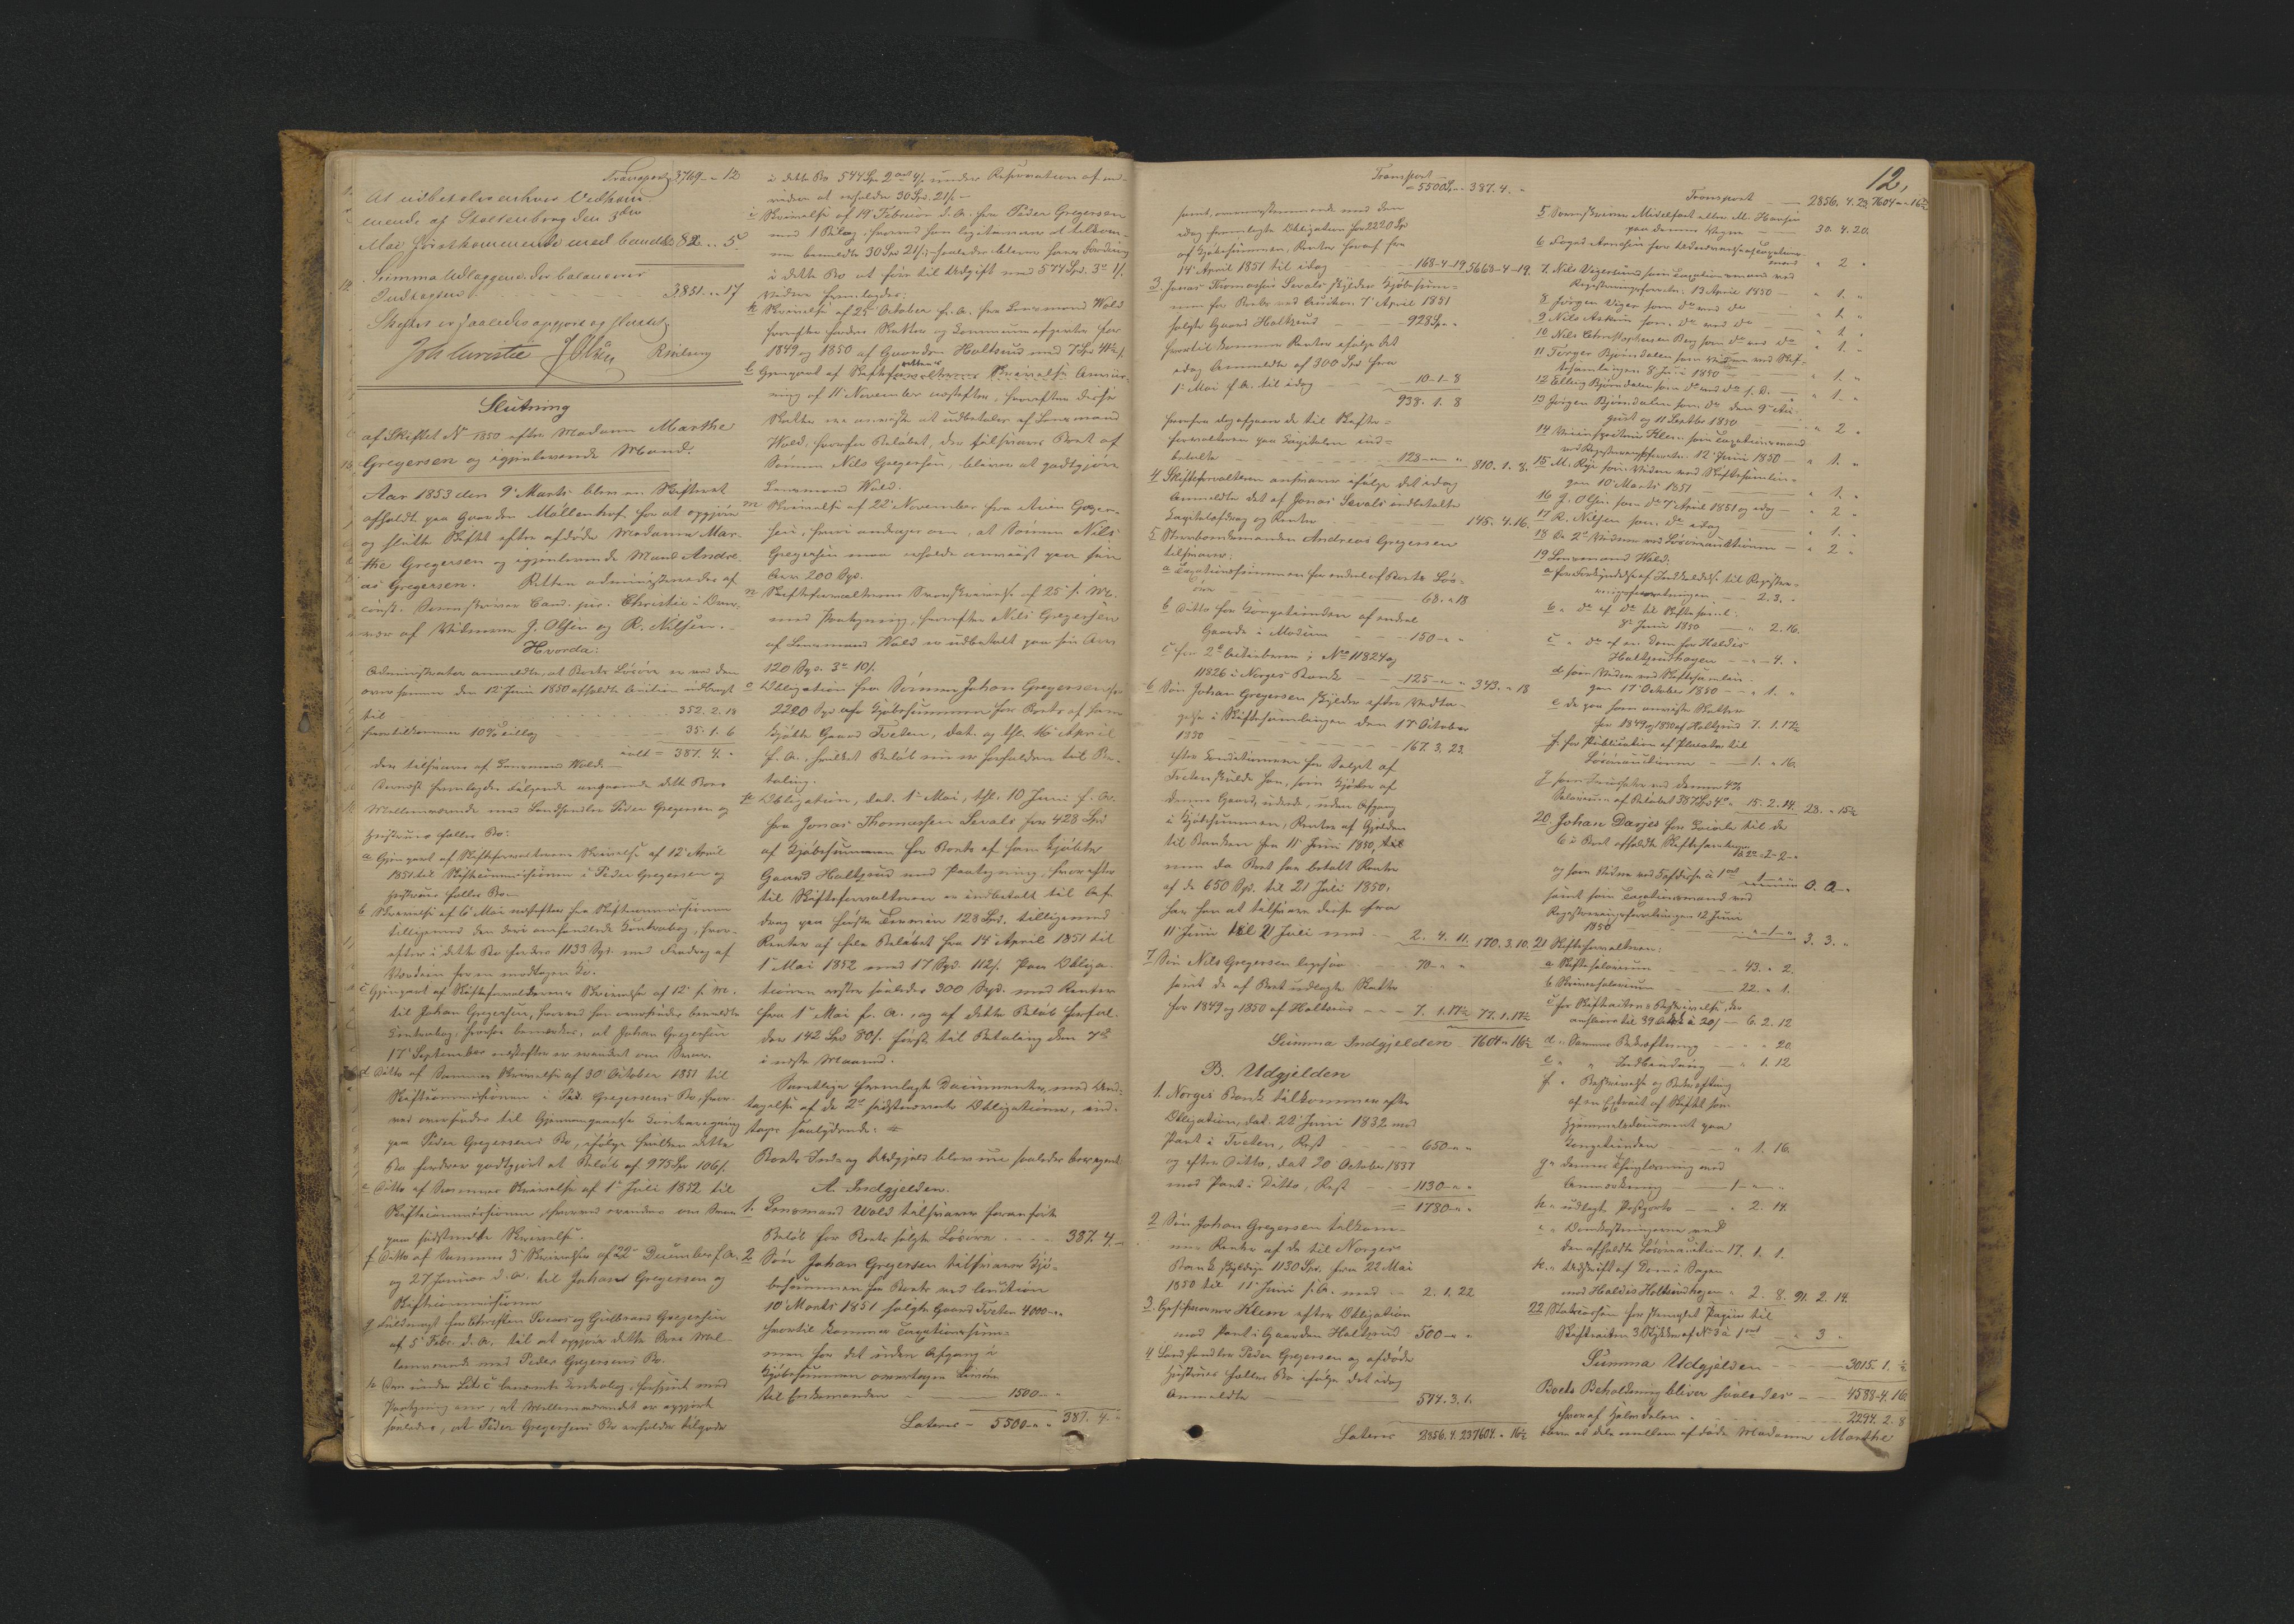 Transport 3769 - „ 12
At udbetales enhver Vedkom-
mende af Stoltenberg den 3die
Mai førstkommende med bemeldte 82 „ 5
Summa Udlæggene der balancerer
Indtægten 3851 „ 17
Skiftet er saaledes opgjort og sluttet
Joh Christie J Olsen R Nilsen
Slutning
af Skiftet No 1850 efter Madam Marthe
Gregersen og igjenlevende Mand.
Aar 1853 den 9de Marts blev en Skifteret
afholdt paa Gaarden Møllenhof for at opgjøre
og slutte Skiftet efter afdøde Madame Mar-
the Gregersen og igjenlevende Mand Andre-
as Gregersen. Retten administreredes af
const. Sorenskriver Cand. jur. Christie i Over-
vær af Vidnerne J. Olsen og R. Nilsen.
Hvorda:
Administrator anmeldte, at Boets Løsøre er ved den
over samme den 12 Juni 1850 afholdte Auction udbragt
til 352. 2. 18
hvortil kommer 10% Tillæg 35. 1. 6
ialt = 387. 4. „
der tilsvares af Lensmand Wold.
Dernæst fremlagdes Følgende angaaende dette Boes
Mellemværende med Landhandler Peder Gregersen og
Hustrues fælles Bo:
a Gjenpart af Skifteforvalterens Skrivelse af 12 April
1851 til Skiftecommissionen i Peder Gregersen og
Hustrues fælles Bo.
b Skrivelse af 6 Mai næstefter fra Skiftecommissionen
tilligemed den deri omhandlede Contrabog, hvor-
efter i dette Bo fordres 1133 Spd. med Fradrag af
Værdien for en modtagen Ko.
c Gjenpart af Skifteforvalterens Skrivelse af 12 s. M.
til Johan Gregersen, hvorved ham oversendes bemeldte
Contrabog; hvorhos bemærkes, at Johan Gregersen
17 September næstefter er erindret om Svar.
d Ditto af Sammes Skrivelse af 30 October 1851 til
Skiftecommissionen i Ped. Gregersens Bo, hvor-
ved oversendes til Gjennemgaaelse Contraregning
paa Peder Gregersens Bo, ifølge hvilken dette
Bo fordrer godtgjort et Beløb af 975 Spd 106 s.
e Ditto af Sammes Skrivelse af 1 Juli 1852 til
Skiftecommissionen, hvorved erindres om Svar
paa sidstmeldte Skrivelse.
f Ditto af Sammes 3 Skrivelser af 22 December f. A.
og 27 Januar d. A. til Johan Gregersen og
Skiftecommissionen
g Fuldmagt for Christen Sværs og Guldbrand Gregersen
af 5 Febr. d. A. til at opgjøre dette Boes Mel-
lemværende med Peder Gregersens Bo.
h Den under Litr. c benævnte Contrabog, forsynet med
Paategning om, at Mellemværendet er opgjort
saaledes, at Peder Gregersens Bo erholder tilgode
i dette Bo 544 Spd 2 ort 4 s. under Reservation af end-
videre at erholde 30 Spd. 21 s.
i Skrivelse af 19 Februar d. A. fra Peder Gregersen
med 1 Bilag, hvorved han legitimerer at tilkom-
me bemeldte 30 Spd 21 s., saaledes bliver hans Fordring
i dette Bo at føre til Udgift med 574 Spd. 3 ort 1 s.
Videre fremlagdes:
k Skrivelse af 25 October f. A. fra Lensmand Wold
hvorefter fordres Skatter og Communeafgivter for
1849 og 1850 af Gaarden Holtsrud med 7 Spd 41½ s.
l Gjenpart af Skifteforvalterens Skrivelse Anvis-
ning af 11 November næstefter, hvorefter disse
Skatter ere anviste at udbetales af Lensmand
Wold, hvorfor Beløbet, der tilsvares Boet af
Sønnen Nils Gregersen, bliver at godtgjøre
Lensmand Wold.
m Skrivelse af 22 November fra Aven Greger-
sen, hvori andrages om, at Sønnen Nils
Gregersen maa erholde anviist paa sin
Arv 200 Spd.
n Skifteforvalterens Svarskrivelse af 25 s. M.
med Paategning, hvorefter Nils Gregersen
af Lensmand Wold er udbetalt paa sin Arv
120 Spd. 3 ort 10 s.
o Obligation fra Sønnen Johan Gregersen for
2220 Spd af Kjøbesummen for Boets af ham
kjøbte Gaard Tveten, dat. og thl. 16 April
f. A., hvilket Beløb nu er forfalden til Be-
taling.
p Obligation, dat. 1 Mai, thl. 10 Juni f. A.
fra Jonas Thomassen Sevals for 428 Spd
af Kjøbesummen for Boets af ham kjøbte
Gaard Holtsrud med Paategning, hvorefter
til Skifteforvalteren er indbetalt til Af-
drag paa første Termin 128 Spd. tilligemed
Renter af hele Beløbet fra 14 April 1851 til
1 Mai 1852 med 17 Spd. 112 s. Paa Obliga-
tionen rester saaledes 300 Spd. med Renter
fra 1 Mai f. A., og af dette Beløb forfal-
der 142 Spd 80 s. først til Betaling den 7de
i næste Maaned.
Samtlige fremlagte Documenter, med Und-
tagelse af de 2de sidstnævnte Obligationer, ind-
tages saalydende:
Boets Ind- og Udgjeld blev nu saaledes beregnet:
A. Indgjelden.
1. Lensmand Wold tilsvarer foranførte
Beløb for Boets solgte Løsøre 387. 4. „
2 Søn Johan Gregersen tilsvarer Kjø-
besummen for Boets ved Auction
10 Marts 1851 solgte Gaard Tveten 4000 „ „
hvortil kommer Taxationssum-
men for det uden Afgang i
Kjøbesummen overtagne Livøre
til Enkemanden 1500 „ „
Lateris - 5500 „ „ 387. 4. „
Transport
5500 Spd „ 387. 4. „
samt, overensstemmende med den
idag fremlagte Obligation for 2220 Spd
af Kjøbesummen, Renter heraf fra
14 April 1851 til idag 168-4-19 5668-4-19.
3. Jonas Thomassen Sevals skylder Kjøbesum-
men for Boets ved Auction 7 April 1851
solgte Gaard Holtsrud 928 Sp. „
hvortil kommer Renter ifølge det
idag Anmeldte af 300 Spd fra
1 Mai f. A. til idag 10-1-8
938. 1. 8
herfra dog afgaaer de til Skifte-
forvalteren paa Capitalen ind-
betalte 128 „ „ 810. 1. 8.
4 Skifteforvalteren ansvarer ifølge det idag
Anmeldte det af Jonas Sevals indbetalte
Capitalafdrag og Renter 145. 4. 16.
5 Stervboenkemanden Andreas Gregersen
tilsvarer:
a Taxationssummen for endeel af Boets Løs-
øre 68. „ 18
b Ditto for Kongetienden af endeel
Gaarde i Modum 150 „ „
c for 2de Actiebreve i No 11824 og
11826 i Norges Bank 125 „ „ 343. „ 18
6 Søn Johan Gregersen skylder efter Vedta-
gelse i Skiftesamlingen den 17 October
1850 167. 3. 23.
efter Conditionerne for Salget af
Tveten skulde han, som Kjøber af
denne Gaard, udrede, uden Afgang
i Kjøbesummen, Renter af Gjelden
til Banken fra 11 Juni 1850, til
men da Boet har betalt Renter
af de 650 Spd. til 21 Juli 1850,
har han at tilsvare disse fra
11 Juni til 21 Juli med 2. 4. 11. 170. 3. 10.
7 Søn Nils Gregersen ligesaa 70 „ „
samt de af Boet udlagte Skatter
for 1849 og 1850 af Holtsrud 7. 1. 17½ 77. 1. 17½
Summa Indgjelden 7604 „ 16½
B. Udgjelden
1. Norges Bank tilkommer efter
Obligation, dat. 22 Juni 1832 med
Pant i Tveten, Rest 650 „ „
og efter Ditto, dat 20 October 1837
med Pant i Ditto, Rest 1130 „ „
= 1780 „ „
2 Søn Johan Gregersen tilkom-
mer Renter af de til Norges
Bank skyldige 1130 Spd. fra 22 Mai
1850 til 11 Juni s. A. med 2. 1. 22
3. Klem efter Obligation
med Pant i Gaarden Holtsrud 500 „ „
4 Landhandler Peder Gregersen og afdøde
Hustrues fælles Bo ifølge det idag
Anmeldte 574. 3. 1.
Lateris 2856. 4. 23 7604. „ 16½
12,
Transport 2856. 4. 23. 7604 „ 16½
5 Sorenskriver Midelfart eller M. Hansen
paa dennes Vegne 30. 4. 20.
6 Foged Arntzen for Udnævnelse af Taxations-
mænd „ 2 „
7. Nils Vegersund som Taxationsmand ved
Registreringsforretn. 13 April 1850 „ 1. „
8 Jørgen Viger som do ved do „ 1. „
9 Nils Askim som do ved do „ 1. „
10 Nils Christophersen Berg som do ved do „ 1. „
11 Torger Bjøndalen som Vidne ved Skif-
tesamlingen 8 Juni 1850 „ 1. „
12 Elling Bjøndalen som do ved do s. D. „ 1. „
13 Jørgen Bjøndalen som do den 9 Au-
gust og 11 Septbr 1850 „ 2 „
14 Klem som Taxationsmand
ved Registreringsforretn. 12 Juni 1850 „ 1. „
15 M. Rye som Vidne ved Skiftesamlin-
gen 10 Marts 1851 „ 1. „
16 J. Olsen som do 7 April 1851 og idag „ 2 „
17 R. Nilsen som do idag „ 1. „
18 De 2de Vidner ved Løsøreauctionen „ 2 „
19 Lensmand Wold:
a for Forkyndelse af Indkaldelse til Registre-
ringsforretningen 2. 3. „
b „ do af do til Skiftesaml.
8 Juni 1850 „ 2. 16.
c „ do af en Dom for Haldis
Holtsrudhagen „ 4. „
d som Vidne ved Skiftesamlin-
gen 17 October 1850 „ 1. „
e de paa ham anviste Skatter
for 1849 og 1850 af Holtsrud 7. 1. 17½
f. for Publication af Placater til
Løsøreauctionen 1. „ 16.
g som Incassator ved denne 4%
Salarium af Beløbet 387 Spd 4 ort 15. 2. 14. 28. „ 15½
20. Johan Darjes for Locale til de
6 i Boet afholdte Skiftesamlinger
à 2 ort 2-2-„
og som Vidne ved Tofdisse à 1 ort
samt som Taxationsmand ved
Registreringsforretningen 12 Juni
1850 „ 1 „ 3. 3. „
21 Skifteforvalteren:
a Skiftesalarium 43. „ 2.
b Skriversalarium 22. „ 1.
c for Skifteactens Beskrivelse, der
ansløes til 39 Ark à 20 s 6. 2. 12
d „ Sammes Bekræftning „ 20.
e „ „ Indbinding „ 1. 12
f. „ Beskrivelse og Bekræftning
af en Extract af Skiftet som
Hjemmelsdocument paa
Kongetienden „ 1. 16.
g „ dennes Thinglæsning med
Anmærkning 1 „ „
h „ udlagte Postporto „ 2. 14.
i „ Omkostningerne ved
den afholdte Løsøreauction 17. 1. 1.
k. „ Udskrift af Dom i Sagen
mod Haldis Holtsrudhagen „ 2. 8. 91. 2. 14.
22 Statscassen for stemplet Papiir til
Skifteacten 3 Stykker af No 3 à 1 ort „ 3 „
Summa Udgjelden 3015. 1. ½
Boets Beholdning bliver saaledes 4588-4. 16.
hvoraf Halvdelen 2294. 2. 8
bliver at dele mellem afdøde Madame Marthe